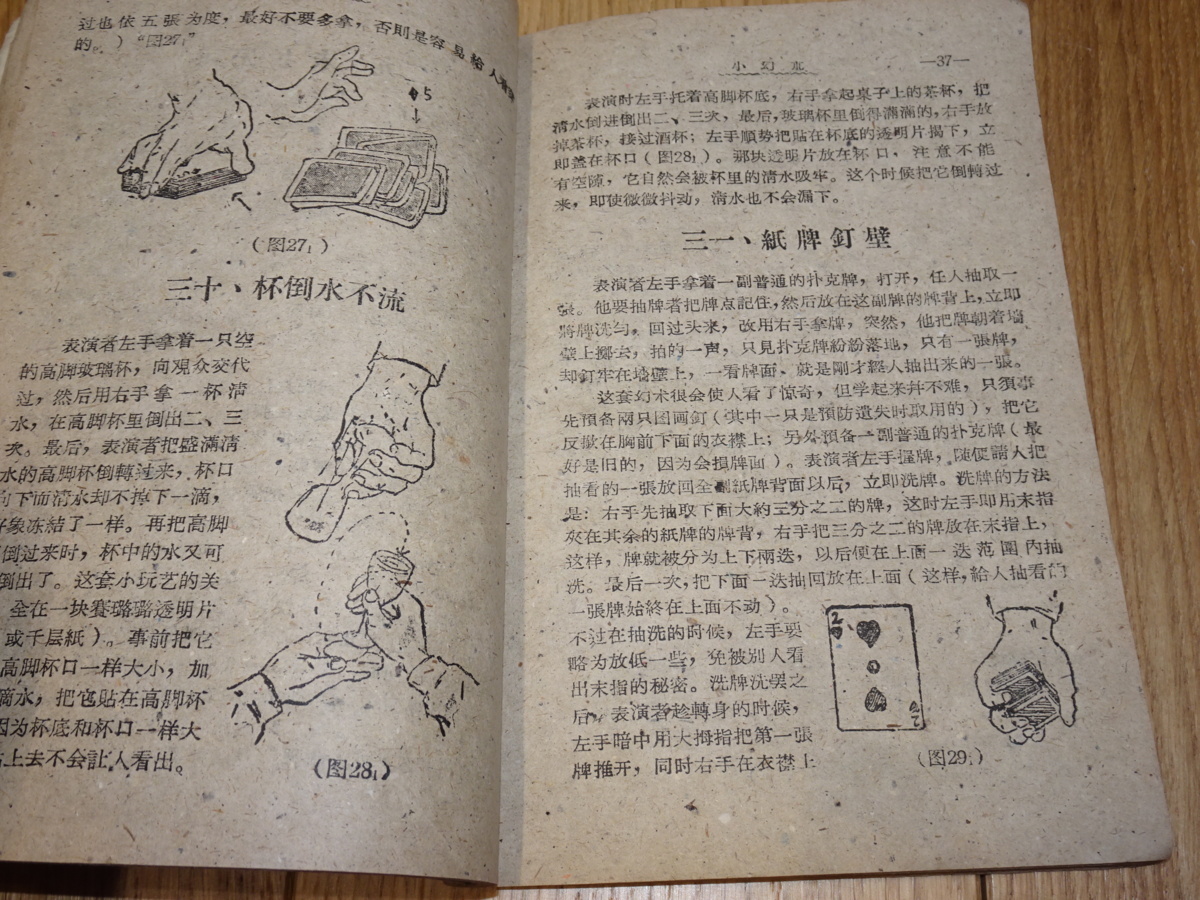 过也依五張为度，最好不要多拿，否則是容易給人看
的。）“图27₁”
♦5
（图27₁）
三十、杯倒水不流
表演者左手拿着一只空
的高脚玻璃杯，向观众交代
过，然后用右手拿一杯清
水，在高脚杯里倒出二、三
次。最后，表演者把盛滿清
水的高脚杯倒轉过来，杯口
向下而清水却不掉下一滴，
好象冻結了一样。再把高脚
倒过来时，杯中的水又可
倒出了。这套小玩艺的关
全在一块賽璐璐透明片
或千层紙）。事前把它
高脚杯口一样大小，加
滴水，把它貼在高脚杯
因为杯底和杯口一样大
上去不会訁人看出。
（图28₁）
小幻朮 —37—
表演时左手托着高脚杯底，右手拿起桌子上的茶杯，把
清水倒进倒出二、三次，最后，玻璃杯里倒得滿滿的，右手放
掉茶杯，接过酒杯；左手順势把貼在杯底的透明片揭下，立
即盖在杯口（图28₁）。那块透明片放在杯口，注意不能
有空隙，它自然会被杯里的清水吸牢。这个时候把它倒轉过
来，即使微微抖动，清水也不会漏下。
三一、紙牌釘壁
表演者左手拿着一副普通的扑克牌，打开，任人抽取一
張。他要抽牌者把牌点記住，然后放在这副牌的牌背上，立即
將牌洗匀。回过头来，改用右手拿牌，突然，他把牌朝着墙
壁上擲去，拍的一声，只見扑克牌紛紛落地，只有一張牌，
却釘牢在墙壁上，一看牌面，就是剛才經人抽出来的一張。
这套幻术很会使人看了惊奇，但学起来幷不难，只須事
先預备兩只图画釘（其中一只是預防遺失时取用的），把它
反撳在胸前下面的衣襟上；另外預备一副普通的扑克牌（最
好是旧的，因为会損牌面）。表演者左手握牌，随便請人把
抽看的一張放回全副紙牌背面以后，立即洗牌。洗牌的方法
是：右手先抽取下面大約三分之二的牌，这时左手即用末指
夾在其余的紙牌的牌背，右手把三分之二的牌放在末指上，
这样，牌就被分为上下兩迭，以后便在上面一迭范圍內抽
洗。最后一次，把下面一迭抽回放在上面（这样，給人抽看的
一張牌始終在上面不动）。
不过在抽洗的时候，左手要
略为放低一些，免被別人看
出末指的秘密。洗牌洗罢之
后，表演者趁轉身的时候，
左手暗中用大拇指把第一張
牌推开，同时右手在衣襟上
2
2
（图29₁）